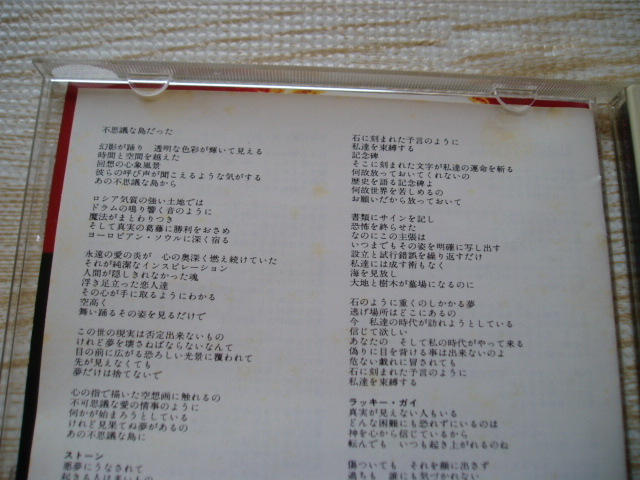 不思議な島だった
幻影が踊り　透明な色彩が輝いて見える
時間と空間を越えた
回想の心象風景
彼らの呼び声が聞こえるような気がする
あの不思議な島から
ロシア気質の強い土地では
ドラムの鳴り響く音のように
魔法がまとわりつき
そして真実の葛藤に勝利をおさめ
ヨーロピアン・ソウルに深く宿る
永遠の愛の炎が　心の奥深く燃え続けていた
それが純潔なインスピレーション
人間が隠しきれなかった魂
浮き足立った恋人達
その心が手に取るようにわかる
空高く
舞い踊るその姿を見るだけで
この世の現実は否定出来ないもの
けれど夢を壊さねばならないなんて
目の前に広がる恐ろしい光景に覆われて
先が見えなくても
夢だけは捨てないで
心の指で描いた空想画に触れるの
不可思議な愛の情事のように
何かが始まろうとしている
けれど見果てぬ夢があるの
あの不思議な島に
ストーン
悪夢にうなされて
石に刻まれた予言のように
私達を束縛する
記念碑
そこに刻まれた文字が私達の運命を斬る
何故放っておいてくれないの
歴史を語る記念碑よ
何故世界を苦しめるの
お願いだから放っておいて
書類にサインを記し
恐怖を終らせた
なのにこの主張は
いつまでもその姿を明確に写し出す
設立と試行錯誤を繰り返すだけ
私達には成す術もなく
海を見放し
大地と樹木が墓場になるのに
石のように重くのしかかる夢
逃げ場所はどこにあるの
今　私達の時代が訪れようとしている
信じて欲しい
あなたの　そして私の時代がやって来る
偽りに目を背ける事は出来ないよ
危ない戯れに冒されても
石に刻まれた予言のように
私達を束縛する
ラッキー・ガイ
真実が見えない人もいる
どんな困難にも恐れずにいるのは
神を心から信じているから
転んでも　いつも起き上がれるのね
傷ついても　それを顔に出さず
過ちも　誰にも気づかれない